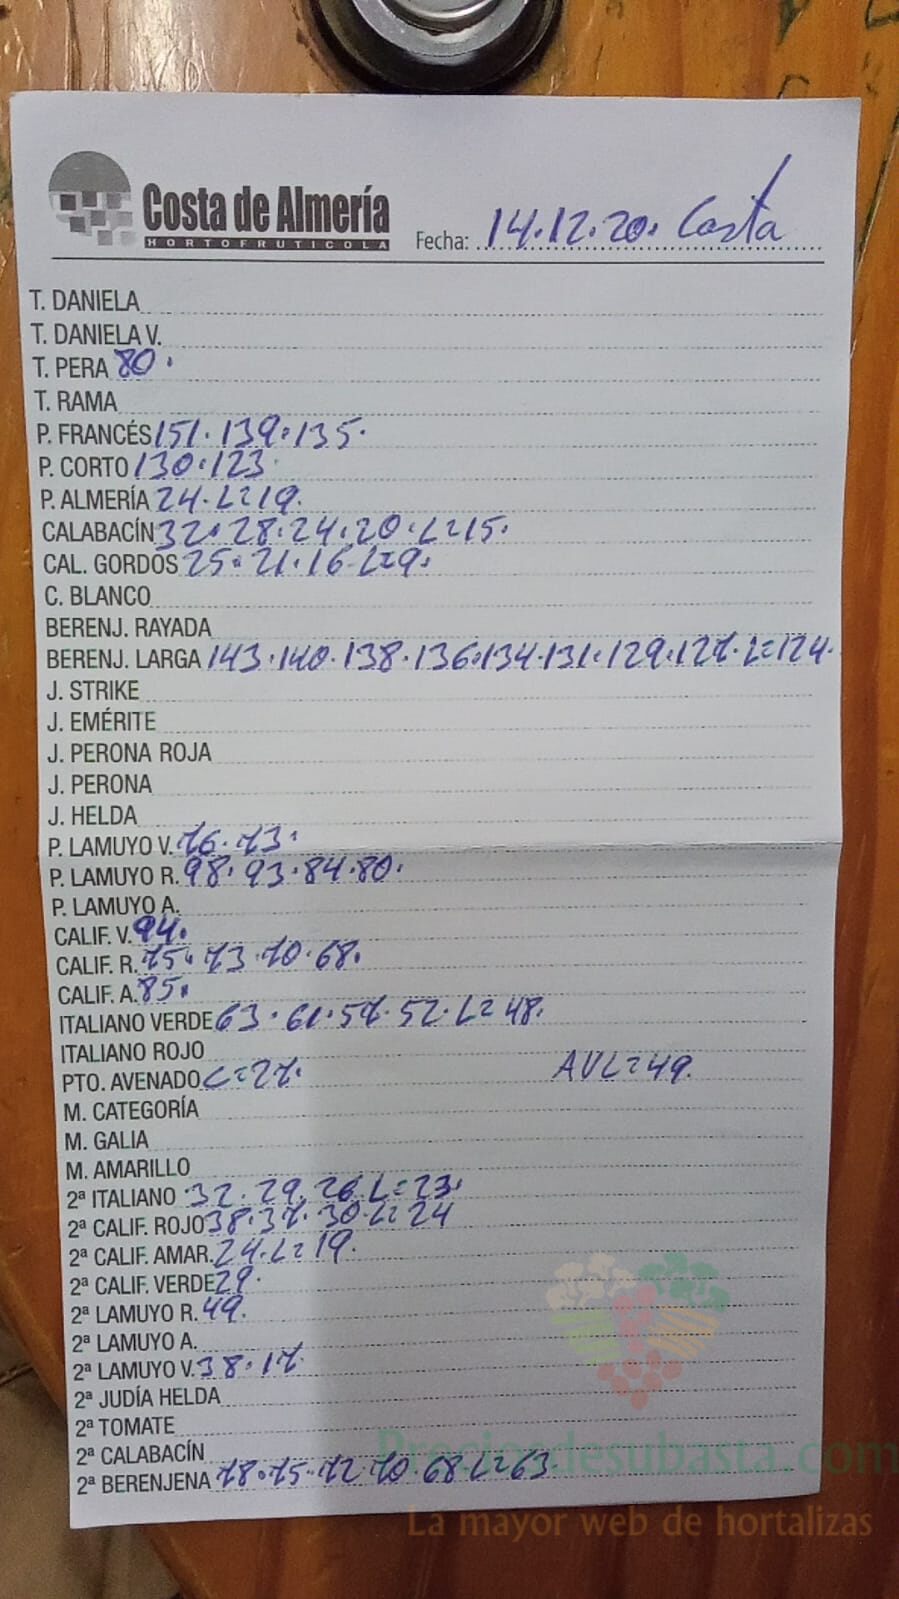 Costa de Almería
HORTOFRUTICOLA
Fecha: 14.12.20. Costa
T. DANIELA
T. DANIELA V.
T. PERA 80.
T. RAMA
P. FRANCÉS 151. 139. 135.
P. CORTO 130. 123
P. ALMERÍA 24. L=19.
CALABACÍN 32. 28. 24. 20. L=15.
CAL. GORDOS 25. 21. 16 L=9.
C. BLANCO
BERENJ. RAYADA
BERENJ. LARGA 143. 140. 138. 136. 134. 131. 129. 127. L=124.
J. STRIKE
J. EMÉRITE
J. PERONA ROJA
J. PERONA
J. HELDA
P. LAMUYO V. 76. 73.
P. LAMUYO R. 98. 93. 84. 80.
P. LAMUYO A.
CALIF. V. 94.
CALIF. R. 75. 73. 70. 68.
CALIF. A. 85.
ITALIANO VERDE 63. 61. 57. 52. L=48.
ITALIANO ROJO
PTO. AVENADO L=27. AVL=49.
M. CATEGORÍA
M. GALIA
M. AMARILLO
2ª ITALIANO 32. 29. 26 L=23.
2ª CALIF. ROJO 38. 37. 30. L=24
2ª CALIF. AMAR. 24. L=19.
2ª CALIF. VERDE 29.
2ª LAMUYO R. 49.
2ª LAMUYO A.
2ª LAMUYO V. 38. 17.
2ª JUDÍA HELDA
2ª TOMATE
2ª CALABACÍN
2ª BERENJENA 78. 75. 72. 70. 68. L=63
Preciosdesubasta.com
La mayor web de hortalizas